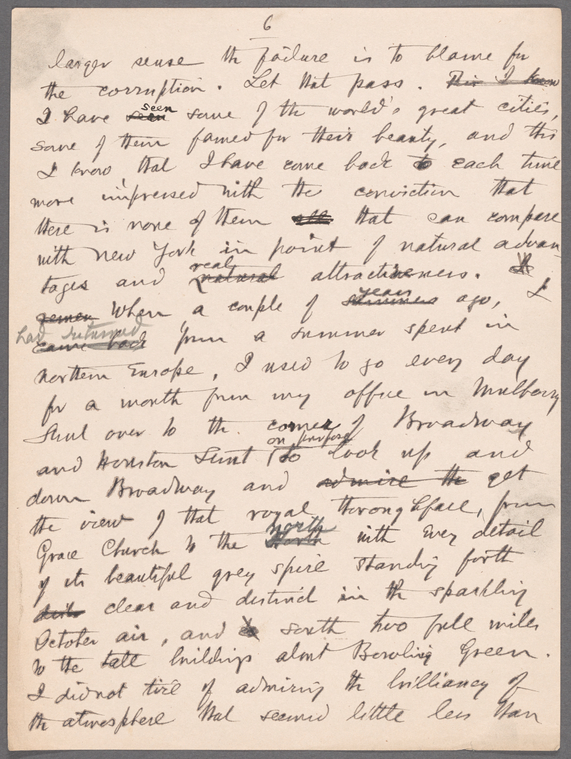 6
larger sense the failure is to blame for
the corruption. Let that pass. This I know
I have seen seen some of the world's great cities,
some of them famed for their beauty, and this
I know that I have come back to each time
more impressed with the conviction that
there is none of them all that can compare
with New York in point of natural advan
tages and natural real attractiveness.
When a couple of summers years ago, I
came back had returned from a summer spent in
northern Europe, I used to go every day
for a month from my office in Mulberry
Street over to the corner of Broadway
and Houston Street on purpose to look up and
down Broadway and admire the get
the view of that royal thoroughfare, from
Grace Church to the north with every detail
of its beautiful grey spire standing forth
clear and distinct in the sparkling
October air, and south two full miles
to the tall buildings about Bowling Green.
I did not tire of admiring the brilliancy of
the atmosphere that seemed little less than